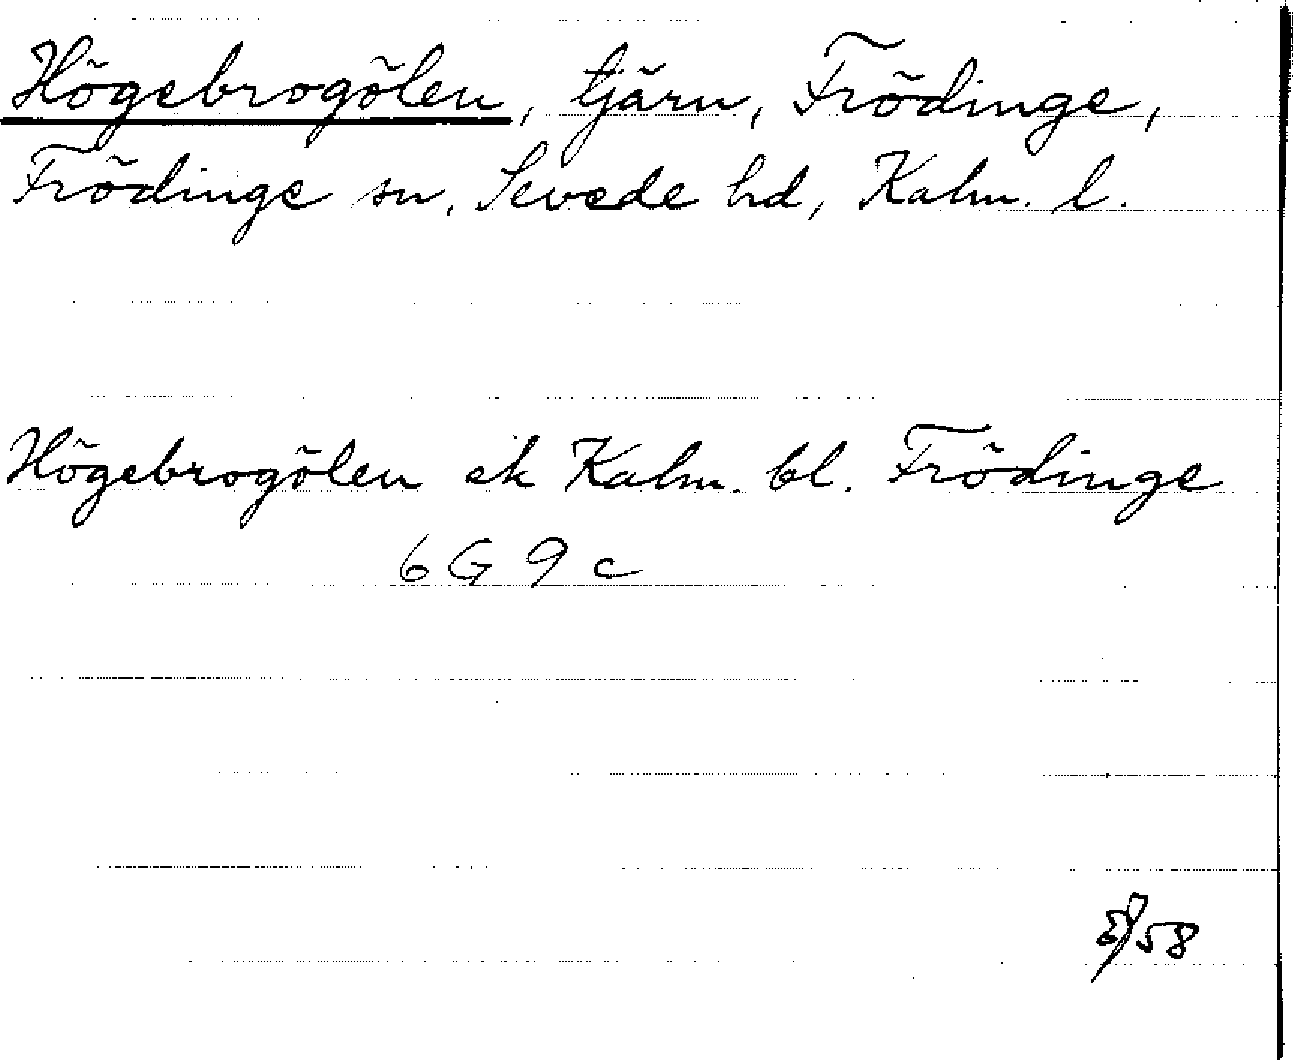 Högebrogölen, tjärn, Frödinge,
Frödinge sn, Sevede hd, Kalm. l.
Högebrogölen ek Kalm. bl. Frödinge
6 G 9 c
58